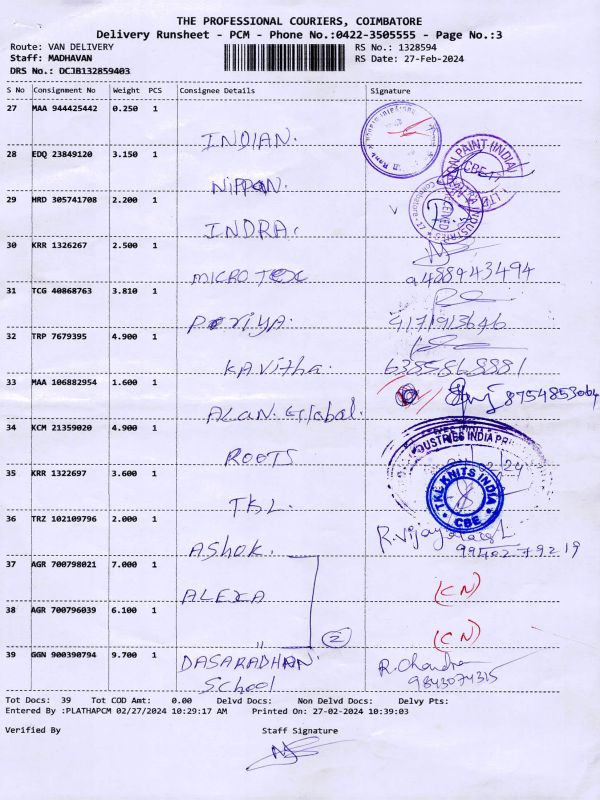 THE PROFESSIONAL COURIERS, COIMBATORE
Delivery Runsheet - PCM - Phone No.:0422-3505555 - Page No.:3
Route: VAN DELIVERY RS No.: 1328594
Staff: MADHAVAN RS Date: 27-Feb-2024
DRS No.: DCJB132859403
S No Consignment No Weight PCS Consignee Details Signature
27 MAA 944425442 0.250 1
INDIAN.
28 EDQ 23849120 3.150 1
NIPPON.
29 MRD 305741708 2.200 1
INDRA.
30 KRR 1326267 2.500 1
MICRO TEX 9488943494
31 TCG 40868763 3.810 1
Periya. 9171913646
32 TRP 7679395 4.900 1
Kavitha. 6385868881
33 MAA 106882954 1.600 1 8754853064
ALAN. Global.
34 KCM 21359020 4.900 1 INDUSTRIES INDIA
ROOTS
35 KRR 1322697 3.600 1 TKL KNITS INDIA
TKL. CBE
36 TRZ 102109796 2.000 1
ASHOK. R. Vijay 99402 79219
37 AGR 700798021 7.000 1
ALEXA (CN)
38 AGR 700796039 6.100 1
2 (CN)
39 GGN 900390794 9.700 1 DASARADHAN. R. Chandra
School 9843074315
Tot Docs: 39 Tot COD Amt: 0.00 Delvd Docs: Non Delvd Docs: Delvy Pts:
Entered By :PLATHAPCM 02/27/2024 10:29:17 AM Printed On: 27-02-2024 10:39:03
Verified By Staff Signature